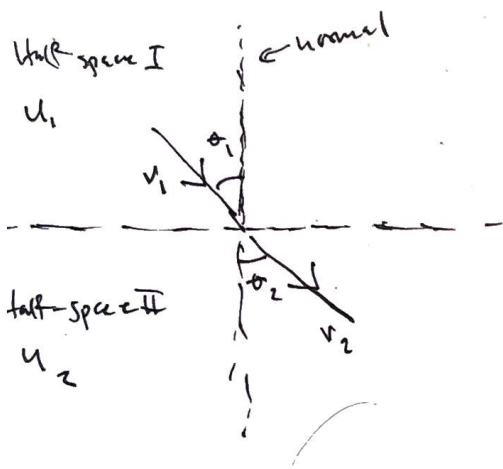 Half space I
← normal
U₁
θ₁
v₁
half-space II
θ₂
U₂
v₂